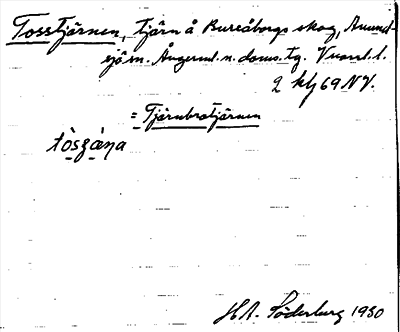 Tosstjärnen, tjärn å Bureåborgs skog, Anund-
sjö sn. Ångerml. n. doms. tg. V
2 kbl 69 NV.
= Tjärnbrotjärnen
tòsząṇa
H A. Söderberg 1930